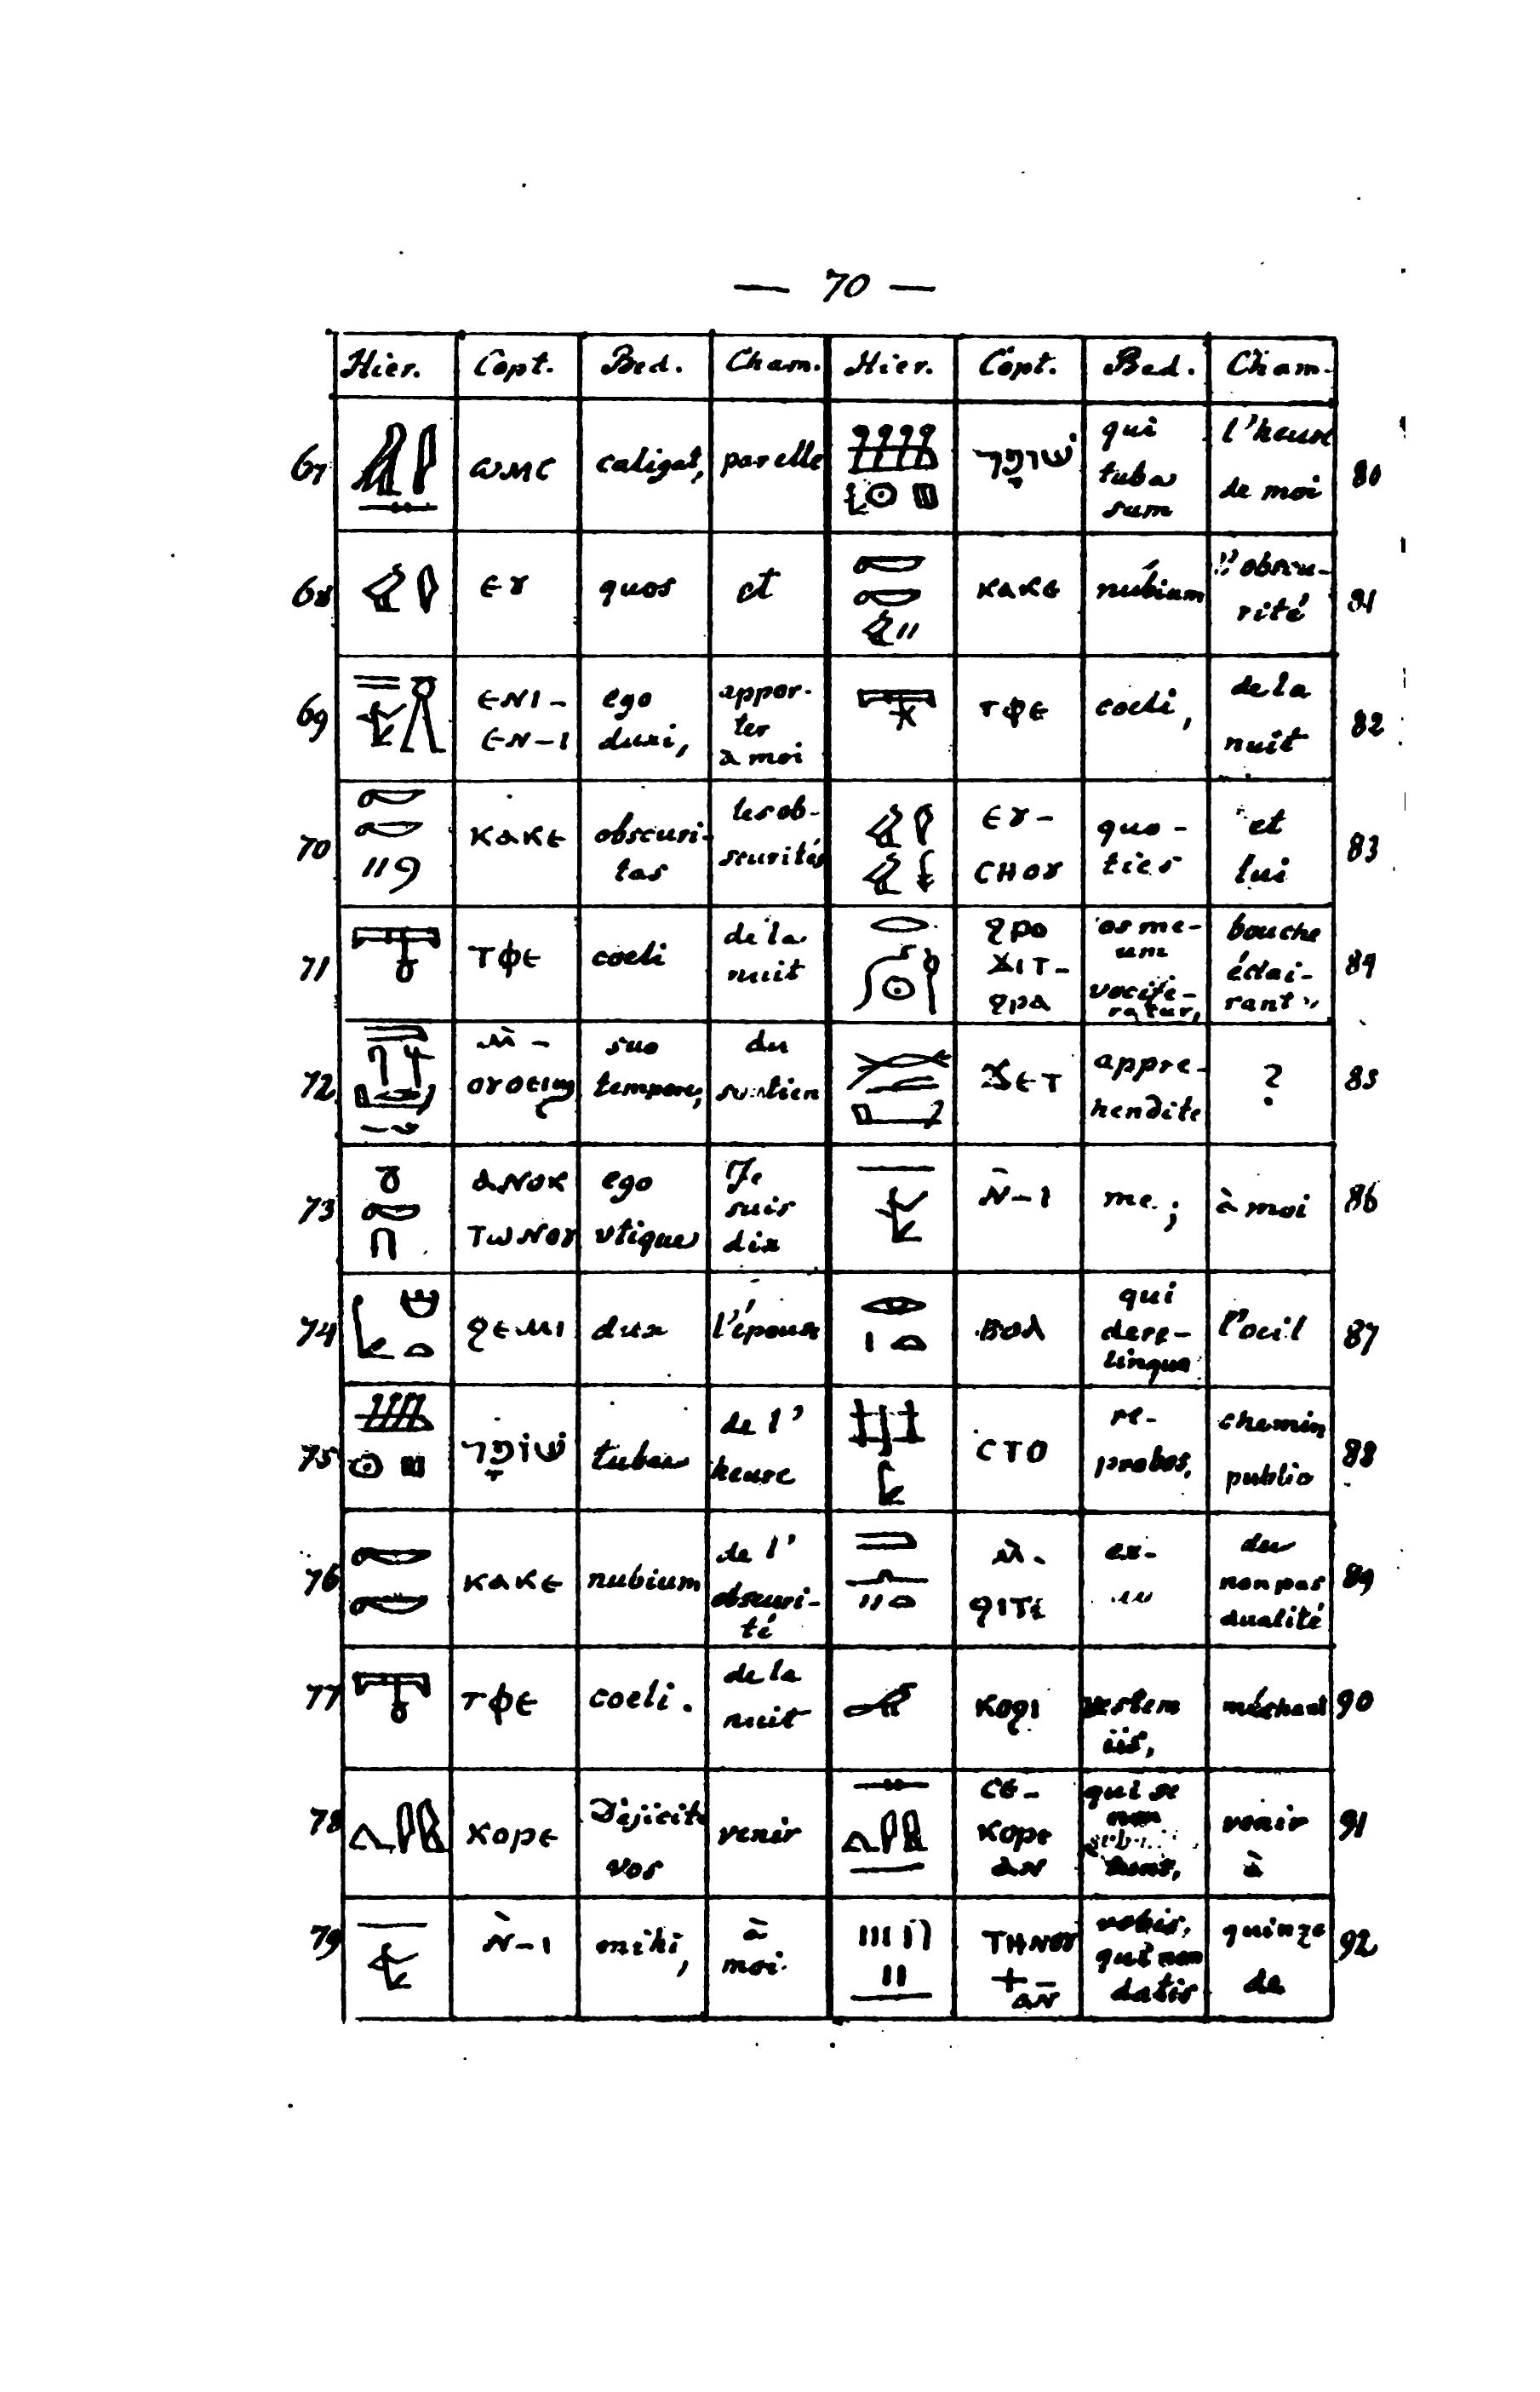 — 70 —
Hier. Copt. Bed. Cham. Hier. Copt. Bed. Cham.
67 ⲱⲙⲥ caligat, par elle
שׁוֹפָר qui tuba sum l'heure de moi 80
68 ⲉⲩ quos et
ⲕⲁⲕⲉ nubium l'obscu-rité 81
69 ⲉⲛⲓ- ⲉⲛ-ⲓ ego duxi, appor-ter à moi
ⲧⲫⲉ coeli, de la nuit 82
70 ⲕⲁⲕⲉ obscuri-tas les ob-scurités
ⲉⲩ- ⲥⲏⲟⲩ quo-ties et lui 83
71 ⲧⲫⲉ coeli de la nuit
ϩⲣⲟ ϫⲓⲧ- ϩⲣⲁ os me-um vocife-ratur, bouche éclai-rant 84
72 ⲙ̀- ⲟⲩⲟⲉⲓϣ suo tempore, du soutien
ϫⲉⲧ appre-hendite ? 85
73 ⲁⲛⲟⲕ ⲧⲱⲛⲟⲩ ego utique Je suis dix
ⲛ̄-ⲓ me; à moi 86
74 ϩⲉⲙⲓ dux l'épouse
ⲃⲟⲗ qui dere-linqua l'oeil 87
75 שׁוֹפָר tubae de l'heure
ⲥⲧⲟ re-probos, chemin public 88
76 ⲕⲁⲕⲉ nubium de l'obscuri-té
ⲙ̀- ϩⲓⲧⲉ ex- du non pas dualité 89
77 ⲧⲫⲉ coeli. de la nuit
ⲕⲟϩⲓ vestem iis, méchant 90
78 ⲕⲟⲣⲉ Dejicit vos venir
ⲥⲉ- ⲕⲟⲣⲉ ⲁⲛ qui se non venir à 91
79 ⲛ̀-ⲓ mihi, à moi.
ⲧⲏⲛⲟⲩ ϯ ⲁⲛ̄ vobis, qui non datis quinze de 92